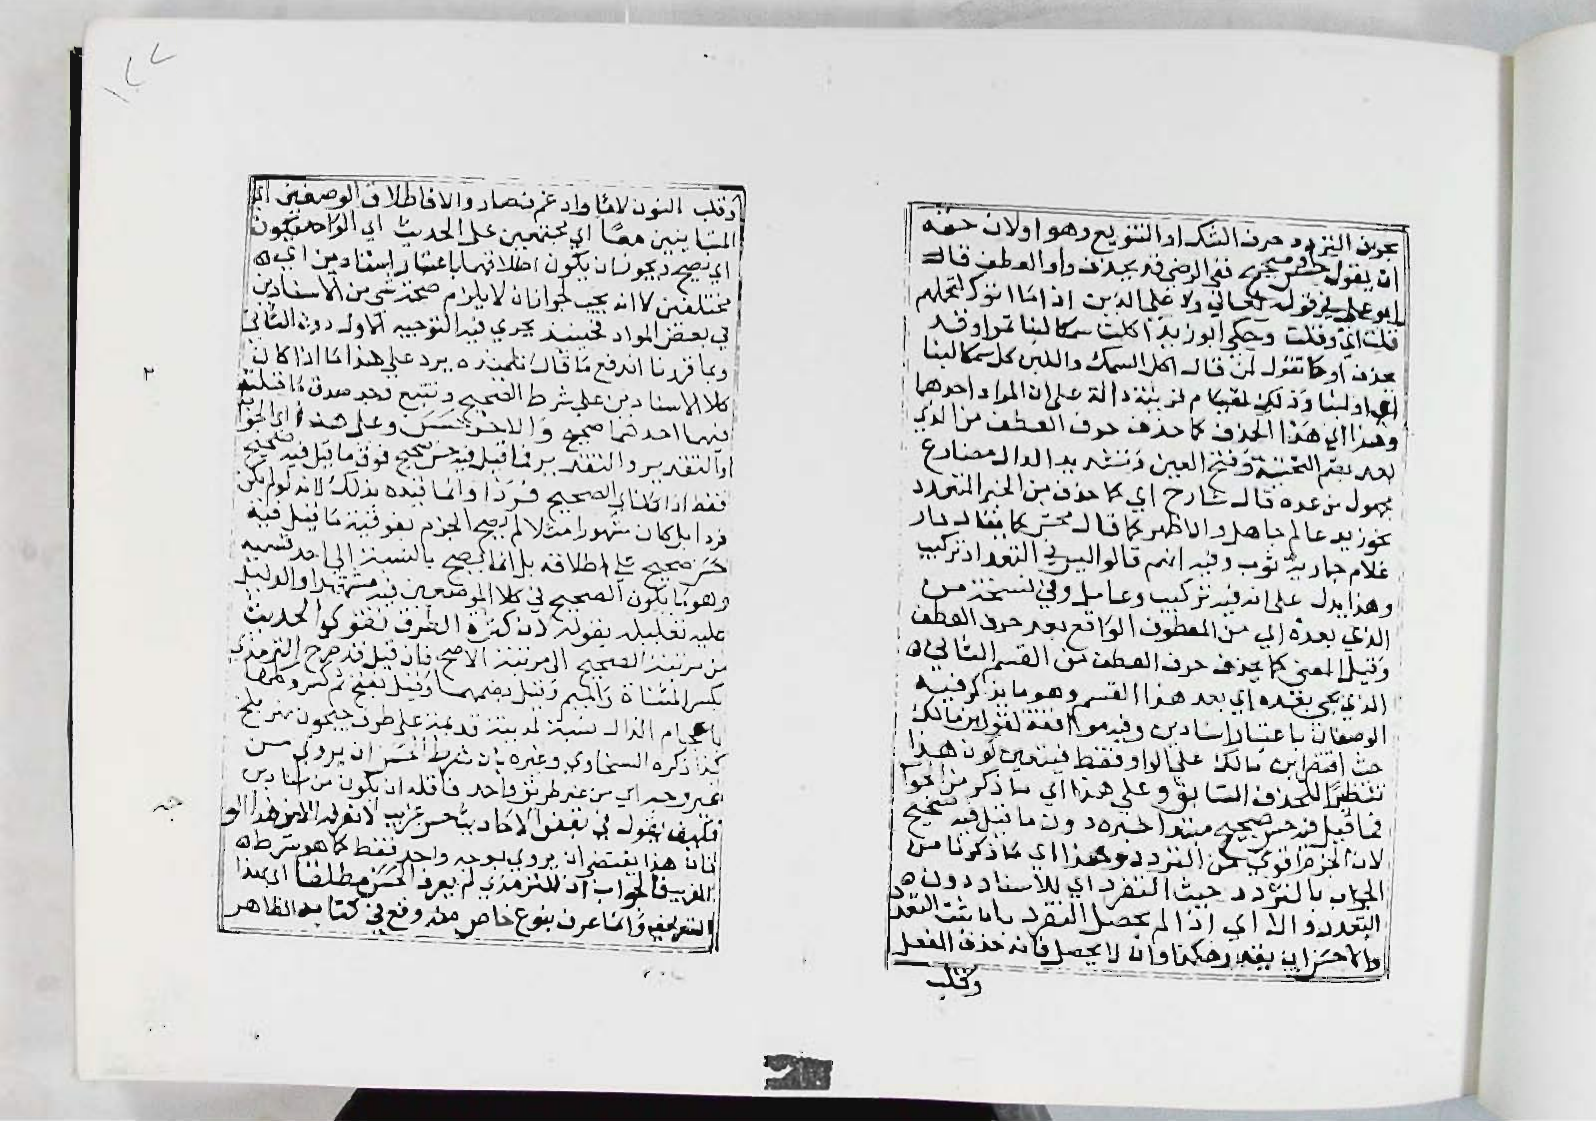 حرف التردد حرف الشك او التنويع وهو اولان حقه
ان يقول حسن او صحيح ففي الرضي قد يحذف واو العطف قال
ابو علي في قوله تعالى ولا على الذين اذا ما اتوك لتحملهم
قلت اي وقلت وحكى ابو زيد اكلت سمكا لبنا تمرا وقد
يحذف او كما تقول لمن قال اكل السمك واللبن كل سمكا لبنا
اي او لبنا وذلك لقيام قرينة دالة على ان المراد احدهما
وهذا اي هذا الحذف كما حذف حرف العطف من الذي
يعد بضم التحتية وفتح العين وتشديد الدال مضارع
مجهول من عده قال شارح اي كما حذف من الخبر المتعدد
نحو زيد عالم جاهل والاظهر كما قال محش كما يقال دار
غلام جارية ثوب وفيه انهم قالوا ليس في التعداد تركيب
وهذا يدل على انه فيه تركيب وعامل وفي نسخة من
الذي بعده اي من المعطوف الواقع بعد حرف العطف
وقيل المعنى كما يحذف حرف العطف من القسم الثاني
الذي يجي بعده اي بعد هذا القسم وهو ما يذكر فيه
الوصفان باعتبار اسنادين وفيه موافقة لقول ابن مالك
حيث اقتصر ابن مالك على الواو فقط فيتعين كون هذا
تنظيرا للحذف السابق وعلى هذا اي ما ذكر من الجواب
فما قيل فيه حسن صحيح مبتدا خبره دون ما قيل فيه صحيح
لان الجزم اقوى من التردد وهذا اي ما ذكرنا من
الجواب بالتردد حيث التفرد اي للاسناد دون
التعدد والا اي اذا لم يحصل التفرد بان ثبت التعدد
والاحسن ان يقدر هكذا وان لا يحصل فانه حذف الفعل
وقلب
وقلب النون لاما وادغم فصار والا فاطلاق الوصفين اي
المتباينين معا اي مجتمعين على الحديث اي الواحد يكون
اي يصح ويجوز ان يكون اطلاقهما باعتبار اسنادين اي
مختلفين لا انه يجب لجواز ان لا يلزم صحة شي من الاسنادين
في بعض المواد فحينئذ يجري فيه التوجيه الاول دون الثاني
وبما قررنا اندفع ما قال تلميذه يرد على هذا ما اذا كان
كلا الاسنادين على شرط الصحيح
فيهما احدهما صحيح والاخر حسن وعلى هذا اي الجواب
او التقدير والتقدير فما قيل فيه حسن صحيح فوق ما قيل فيه صحيح
فقط اذا كان اي الصحيح فردا وانما قيده بذلك لانه لو لم يكن
فردا بل كان مشهورا مثلا لم يصح الجزم بفوقية ما قيل فيه
حسن صحيح على اطلاقه بل انما يصح بالنسبة الى احد قسميه
وهو ما يكون الصحيح في كلا الموضعين فيه مشتهرا والدليل
عليه تعليله بقوله لان كثرة الطرق تقوي الحديث
من مرتبة الصحيح الى مرتبة الاصح فان قيل قد صرح الترمذي
بكسر المثناة والميم وقيل بضمهما وقيل بفتح ثم كسر وكلها
باعجام الذال نسبة لمدينة قديمة على طرف جيحون نهر بلخ
كذا ذكره السخاوي وغيره بان شرط الحسن ان يروى من
غير وجه اي من غير طريق واحد فاقله ان يكون من اسنادين
فكيف يقول في بعض الاحاديث حسن غريب لا نعرفه الا من هذا الوجه
فان هذا يقتضي ان يروى بوجه واحد فقط كما هو شرط
الغريب فالجواب ان الترمذي لم يعرف الحسن مطلقا اي بهذا
التعريف وانما عرف بنوع خاص منه وقع في كتابه الظاهر